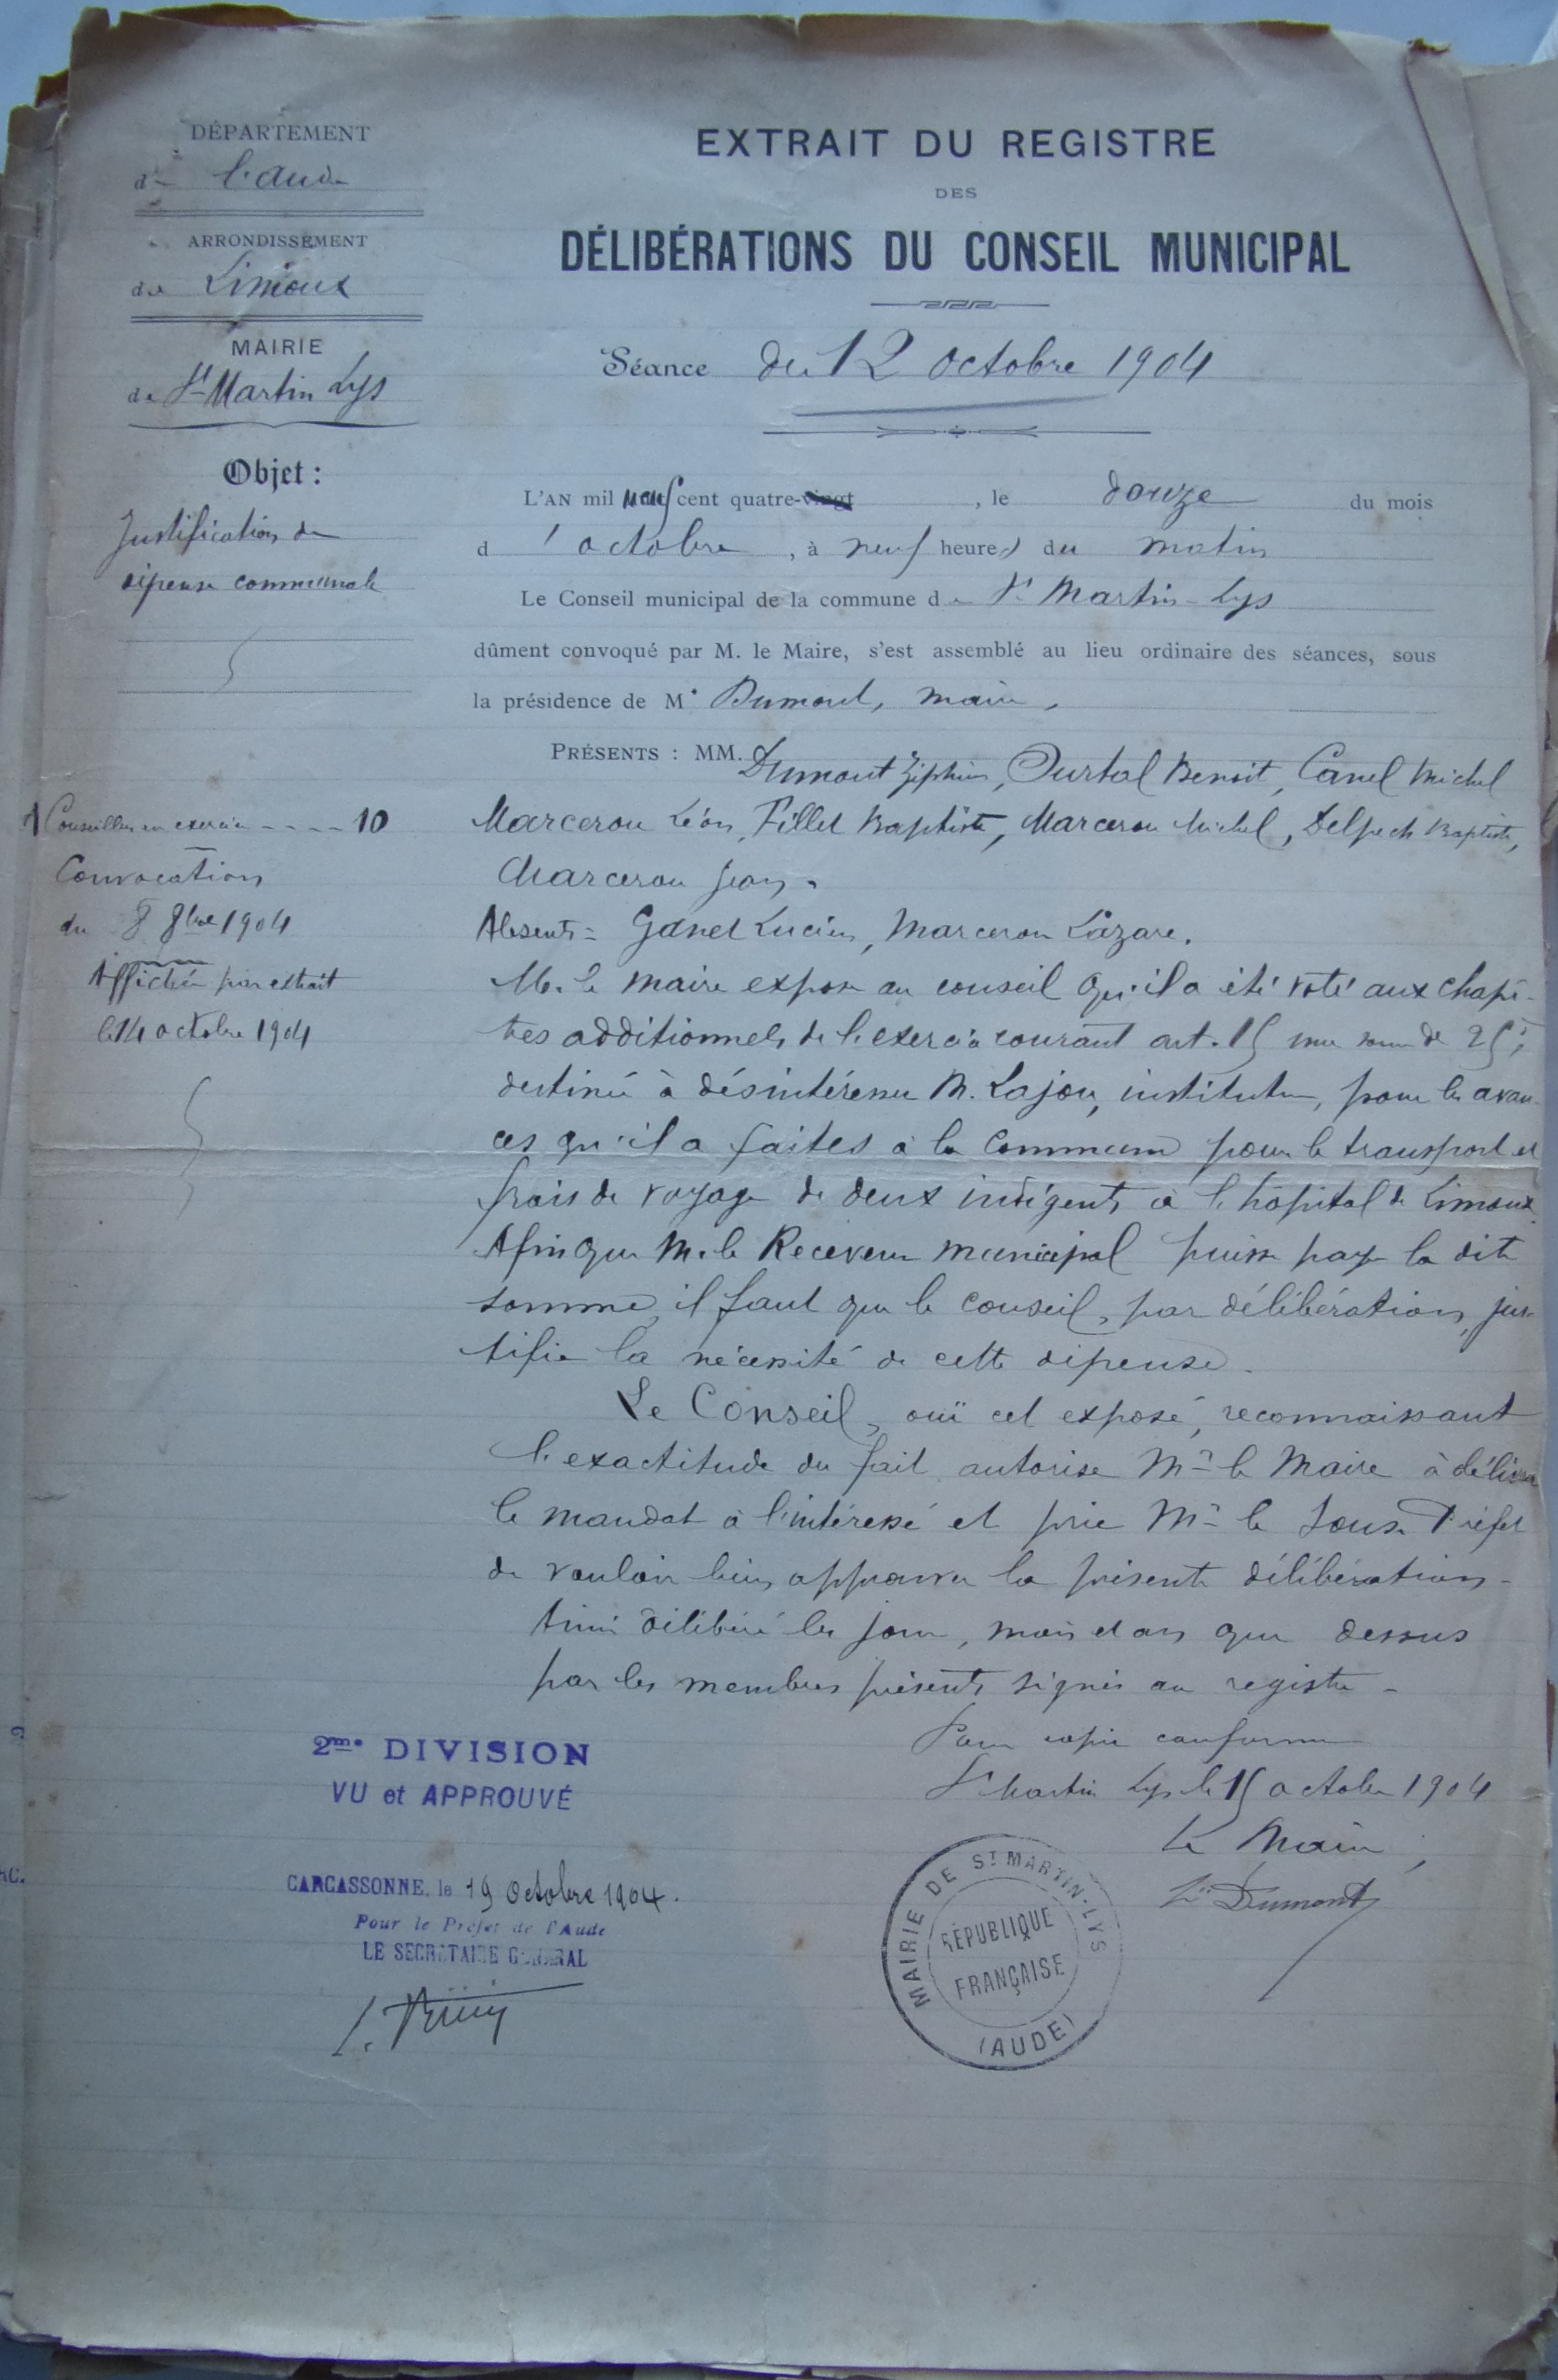 DÉPARTEMENT
de l'Aude
ARRONDISSEMENT
de Limoux
MAIRIE
de St Martin Lys
Objet :
Justification de
dépense communale
Conseillers en exercice ---- 10
Convocation
du 8 8bre 1904
Affichée par extrait
le 14 octobre 1904
EXTRAIT DU REGISTRE
DES
DÉLIBÉRATIONS DU CONSEIL MUNICIPAL
Séance du 12 octobre 1904
L'AN mil neuf cent quatre-vingt , le douze du mois
d'octobre , à neuf heures du matin
Le Conseil municipal de la commune de St Martin-Lys
dûment convoqué par M. le Maire, s'est assemblé au lieu ordinaire des séances, sous
la présidence de Mr Dumont, maire,
PRÉSENTS : MM. Dumont Ziphirin, Ourtal Benoit, Canel Michel
Marcerou Léon, Fillet Baptiste, Marcerou Michel, Delpech Baptiste,
Marcerou Jean.
Absents = Ganet Lucien, Marcerou Lazare.
M. le Maire expose au conseil qu'il a été voté aux chapi-
tres additionnels de l'exercice courant art. 15 une somme de 25f
destinée à désintéresser M. Lajou, instituteur, pour les avan-
ces qu'il a faites à la commune pour le transport et
frais de voyage de deux indigents à l'hôpital de Limoux.
Afin que M. le Receveur municipal puisse payer la dite
somme, il faut que le conseil, par délibération, jus-
tifie la nécessité de cette dépense.
Le Conseil, ouï cet exposé, reconnaissant
l'exactitude du fait, autorise Mr le Maire à délivrer
le mandat à l'intéressé et prie Mr le Sous-Préfet
de vouloir bien approuver la présente délibération-
Ainsi délibéré les jour, mois et an que dessus
par les membres présents signés au registre -
Pour copie conforme
St Martin Lys le 15 octobre 1904
Le Maire,
Zin Dumont
2me DIVISION
VU et APPROUVÉ
CARCASSONNE, le 19 Octobre 1904.
Pour le Préfet de l'Aude
LE SECRÉTAIRE GÉNÉRAL
MAIRIE DE ST MARTIN-LYS
RÉPUBLIQUE
FRANÇAISE
(AUDE)